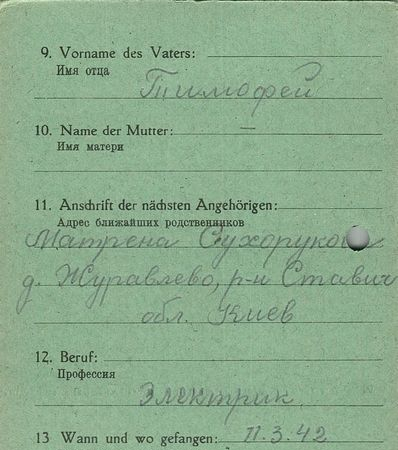 9. Vorname des Vaters:
Имя отца
Тимофей
10. Name der Mutter: —
Имя матери
11. Anschrift der nächsten Angehörigen:
Адрес ближайших родственников
Матрена Сухорукова
д. Журавлево, р-н Ставич
обл. Киев
12. Beruf:
Профессия
Электрик
13 Wann und wo gefangen: 11.3.42